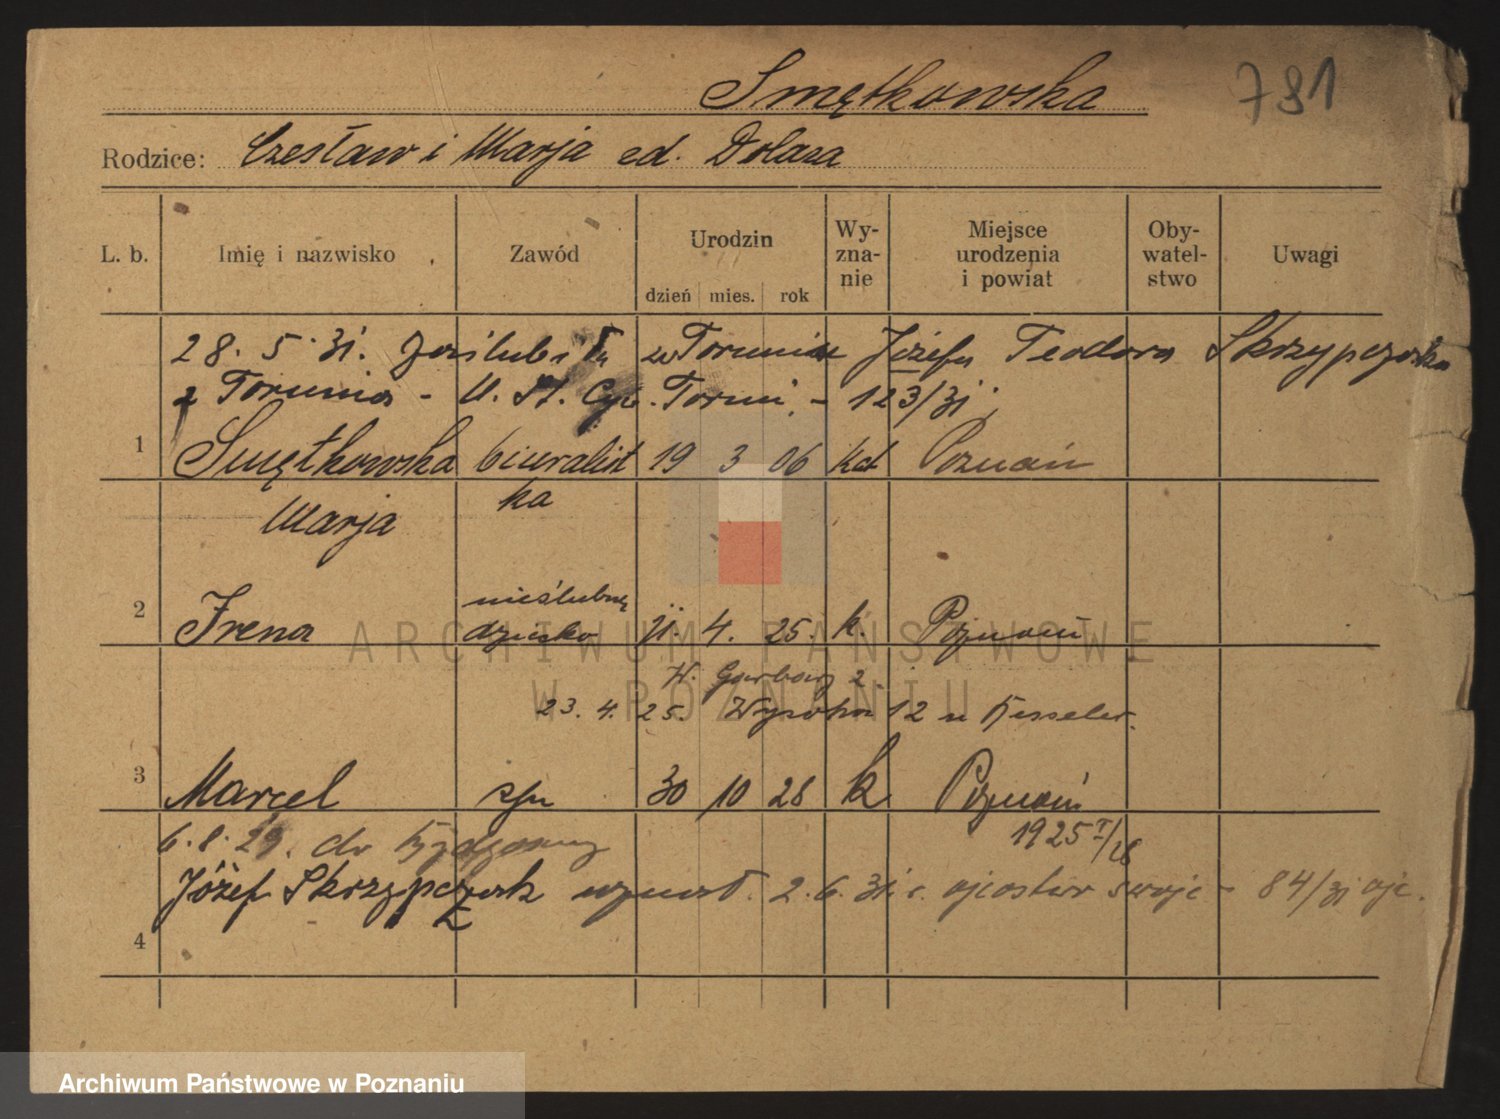 Smętkowska
781
Rodzice: Czesław i Marja zd. Dolaza
L. b. Imię i nazwisko Zawód Urodzin dzień mies. rok Wy- zna- nie Miejsce urodzenia i powiat Oby- watel- stwo Uwagi
28. 5. 31. zaślubiła w Toruniu Józefa Teodora Skrzypczaka
z Torunia - U. St. Cyw. Toruń - 123/31
1 Smętkowska biuralist 19 3 06 kat Poznań
Marja ka
nieślubne
2 Irena dziecko 11. 4. 25. k. Poznań
W. Garbary 2
23. 4. 25. Wysoka 12 u Kesseler.
3 Marcel syn 30 10 28 k Poznań
6. 8. 29. do Bydgoszczy 1925 I/28
Józef Skrzypczak uznał 2. 6. 31 r. ojcostwo swoje - 84/31 ojc.
4
ARCHIWUM PAŃSTWOWE
W POZNANIU
Archiwum Państwowe w Poznaniu